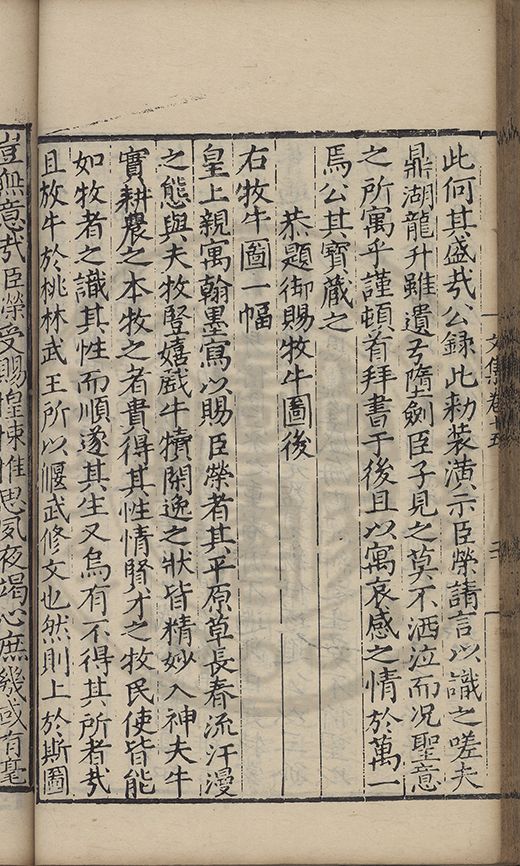 此何其盛哉公錄此勑装潢示臣榮請言以識之嗟夫
鼎湖龍升雖遺弓墮劍臣子見之莫不洒泣而况聖意
之所寓乎謹頓首拜書于後且以寓哀感之情於萬一
焉公其寶藏之
恭題御賜牧牛圖後
右牧牛圖一幅
皇上親寓翰墨寫以賜臣榮者其平原草長春流汗漫
之態與夫牧豎嬉戲牛犢閑逸之狀皆精妙入神夫牛
實耕農之本牧之者貴得其性情賢才之牧民使皆能
如牧者之識其性而順遂其生又烏有不得其所者哉
且放牛於桃林武王所以偃武修文也然則上於斯圖
豈無意哉臣榮受賜皇悚惟思夙夜竭心庶幾或有毫
文集卷十五